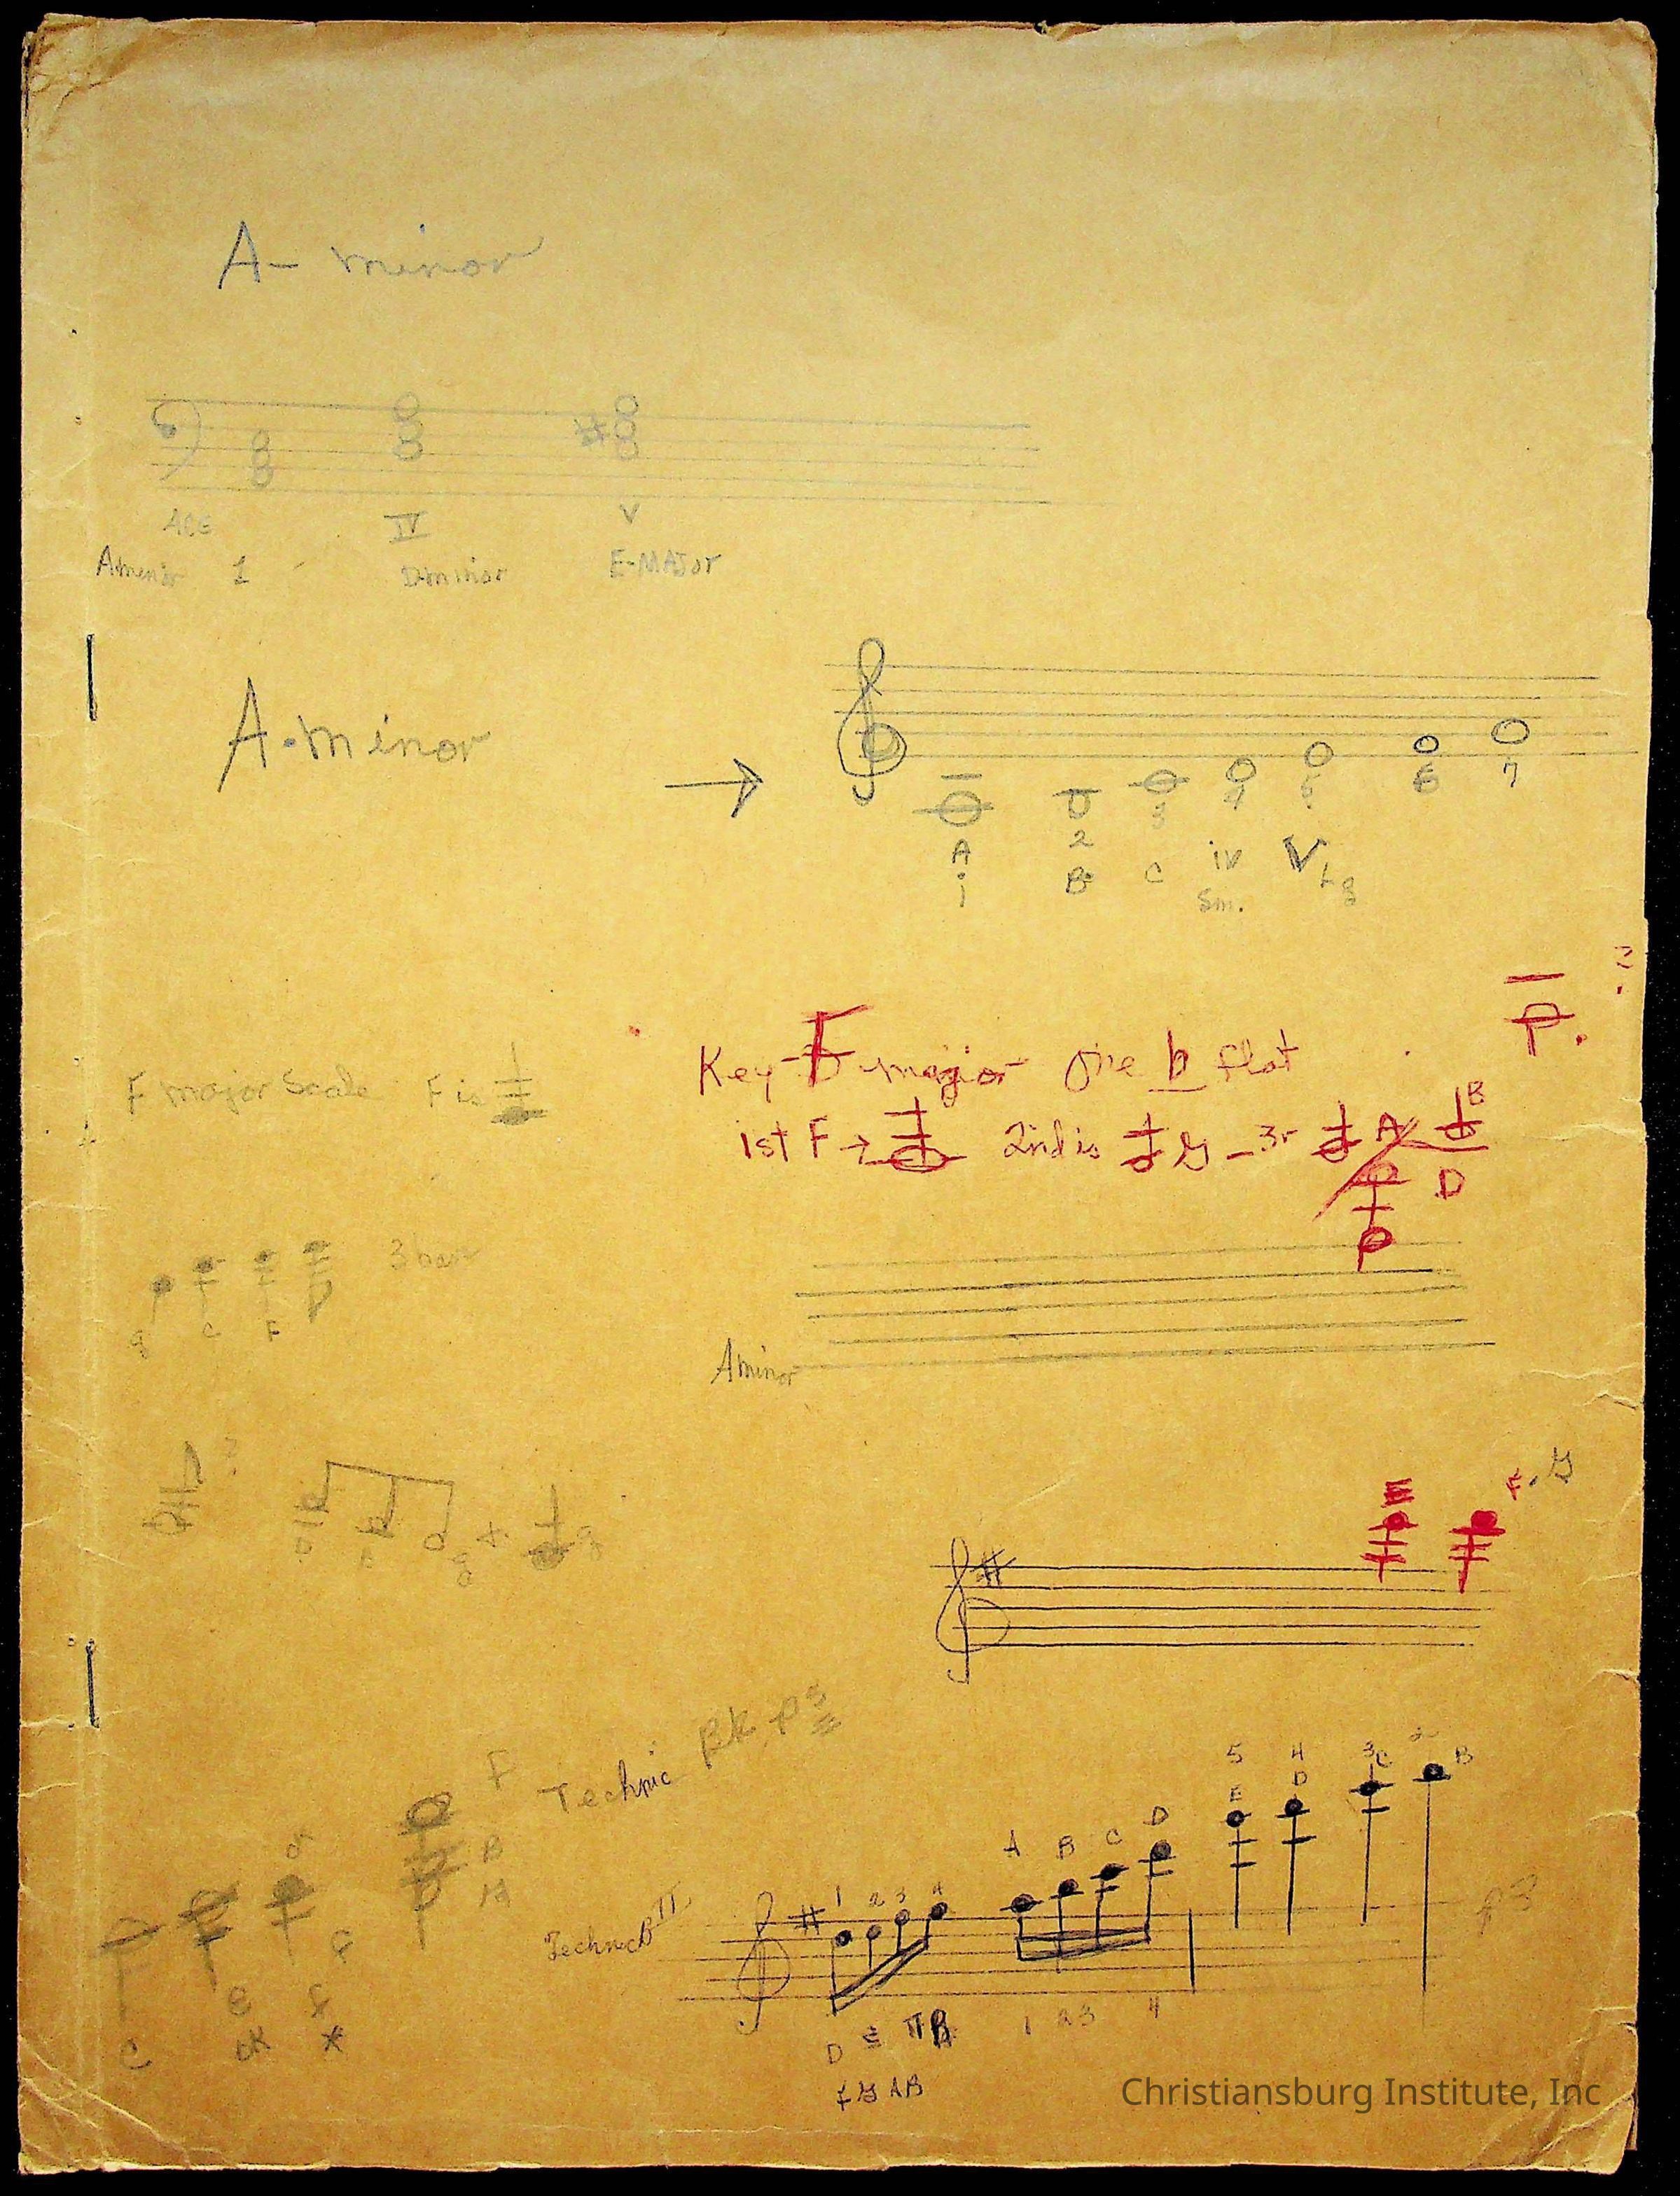 A- minor
ACE IV V
Aminor 1 Dminor E-MAJor
A.minor
3 4 5 6 7
A 2 iv V Lg
1 B C Sm.
?
Key-F major One b flat
F major Scale F is
1st F → 2nd is G - 3r A B
D
3 bar
g C F
Aminor
?
g + g
E F. G
F Technic BK p 3
5 4 3 2
E D C B
A B C D
B
A
Technic B II
1 2 3 4
p 3
C E F
OK *
D E 1 2 3 4
F G A B
Christiansburg Institute, Inc